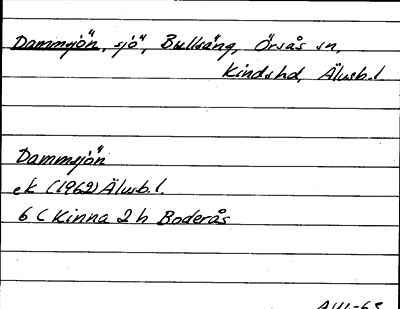 Dammsjön, sjö, Bullsäng, Örsås sn,
Kinds hd, Älvsb.l
Dammsjön
ek (1962) Älvsb.l.
6 C Kinna 2 h Boderås